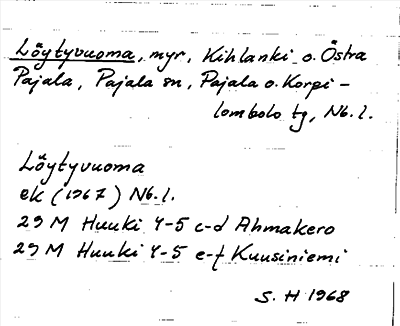 Löytyvuoma, myr, Kihlanki o. Östra
Pajala, Pajala sn, Pajala o. Korpi-
lombolo tg, Nb. l.
Löytyvuoma
ek (1967) Nb. l.
29 M Huuki 4-5 c-d Ahmakero
29 M Huuki 4-5 e-f Kuusiniemi
S. H 1968